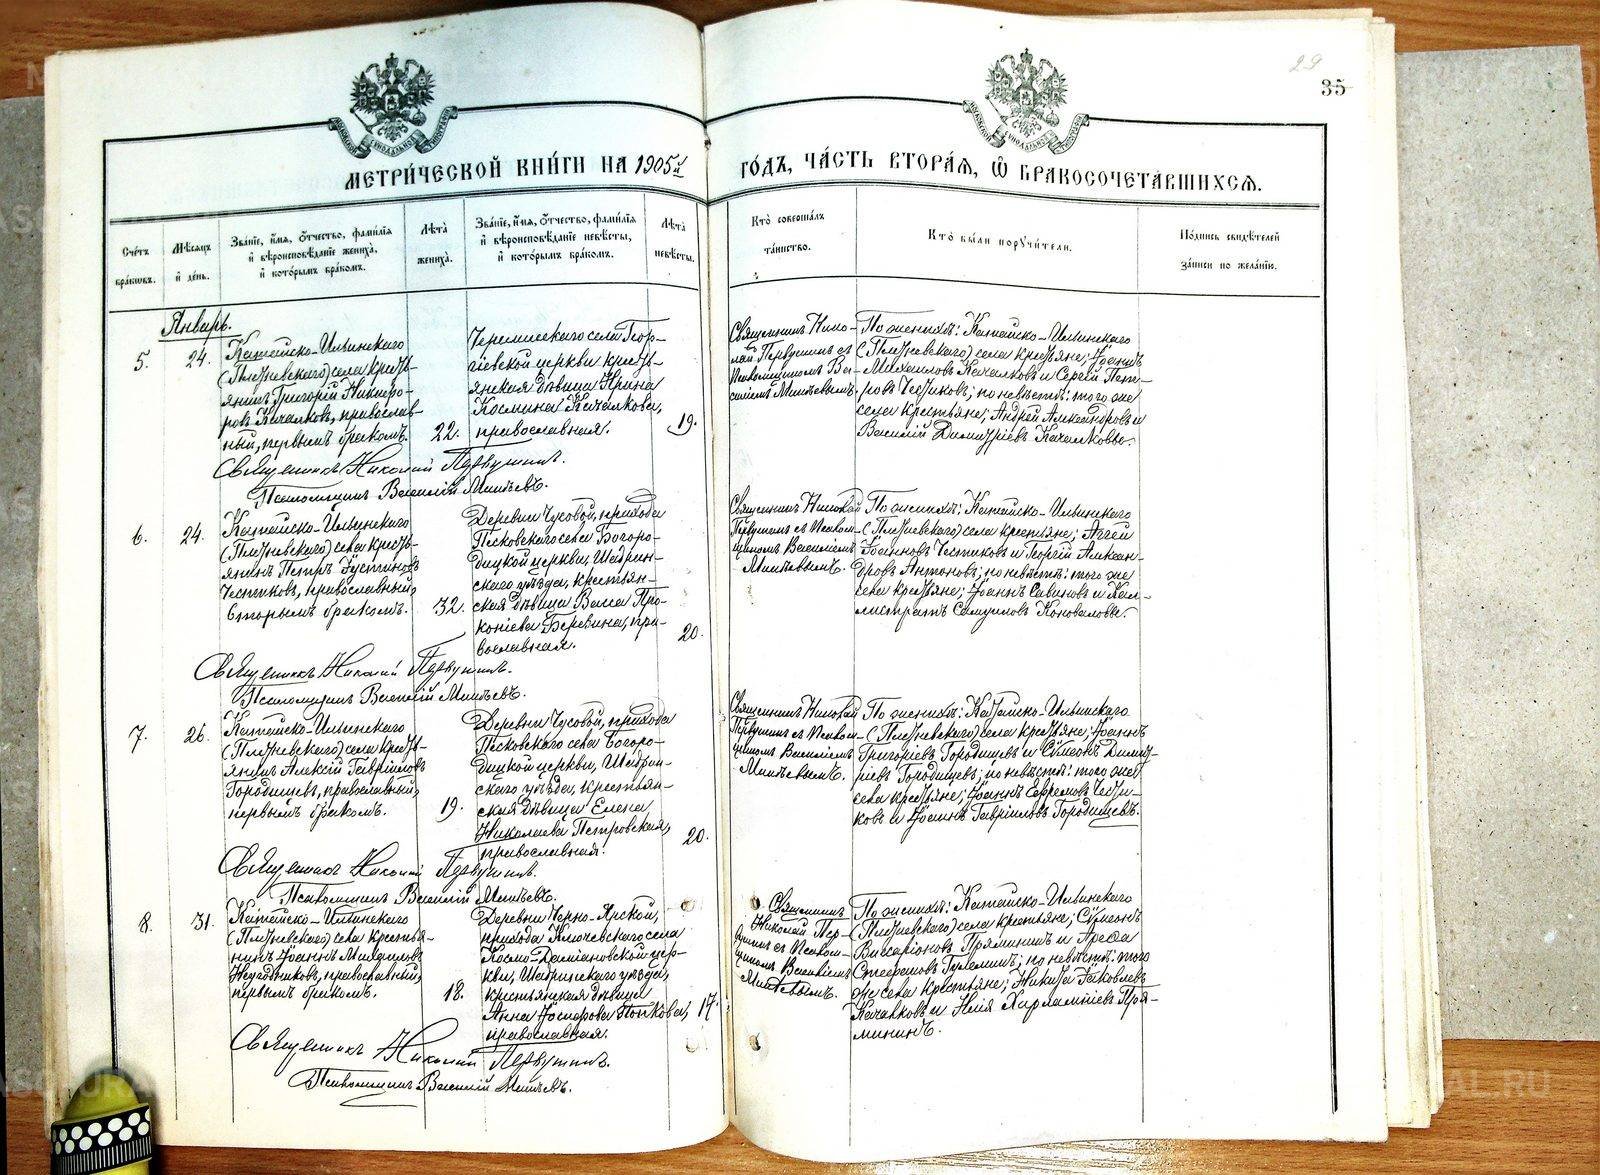 29
35
МЕТРИ́ЧЕСКОЙ КНИ́ГИ НА 1905й ГО́ДЪ, ЧА́СТЬ ВТОРА́Я, Ѡ҆ БРАКОСОЧЕТА́ВШИХСЯ.
Сче́тъ бра́ковъ.
Мѣ́сяцъ и҆ де́нь.
Зва́нїе, и҆́мя, ѻ҆́тчество, фами́лїя
и҆ вѣроисповѣ́данїе жениха̀,
и҆ кото́рымъ бра́комъ.
Лѣ́та жениха̀.
Зва́нїе, и҆́мя, ѻ҆́тчество, фами́лїя
и҆ вѣроисповѣ́данїе невѣ́сты,
и҆ кото́рымъ бра́комъ.
Лѣ́та невѣ́сты.
Кто̀ соверша́лъ
та́инство.
Кто̀ бы́ли поручи́тели.
По́дпись свидѣ́телей
за́писи по жела́нїю.
Январь.
5.
24.
Катайско-Ильинскаго
(Плотневскаго) села кресть-
янинъ Григорій Никифо-
ровъ Качалковъ, православ-
ный, первымъ бракомъ.
22.
Черемисскаго села Геор-
гіевской церкви кресть-
янская дѣвица Ирина
Космина Качалкова,
православная.
19.
Священникъ Нико-
лай Первушинъ съ
Псаломщикомъ Ва-
силіемъ Минѣевымъ.
По женихѣ: Катайско-Ильинскаго
села крестьяне; Іоаннъ
Михаиловъ Качалковъ и Сергій Пет-
ровъ Честиковъ; по невѣстѣ: того же
села крестьяне; Андрей Александровъ и
Василій Димитріевъ Качалковы.
Священникъ Николай Первушинъ.
Псаломщикъ Василій Минѣевъ.
6.
24.
Катайско-Ильинскаго
села кресть-
янинъ Петръ Іустиновъ
Честиковъ, православный,
вторымъ бракомъ.
32.
Деревни Чусовой, прихода
Песковскаго села Богоро-
дицкой церкви, Шадрин-
скаго уѣзда, крестьян-
ская дѣвица Васса Про-
копіева Березина, пра-
вославная.
20.
Священникъ Николай
Первушинъ съ Псалом-
щикомъ Василіемъ
Минѣевымъ.
По женихѣ: Катайско-Ильинскаго
села крестьяне; Аггей
Іоанновъ Честиковъ и Георгій Алексан-
дровъ Антоновъ; по невѣстѣ: того же
села крестьяне; Іоаннъ Савиновъ и Кал-
листратъ Самуиловъ Коноваловы.
Священникъ Николай Первушинъ.
Псаломщикъ Василій Минѣевъ.
7.
26.
Катайско-Ильинскаго
села кресть-
янинъ Алексій Гавріиловъ
Городищевъ, православный,
первымъ бракомъ.
19.
Деревни Чусовой, прихода
Песковскаго села Богоро-
дицкой церкви, Шадрин-
скаго уѣзда, крестьян-
ская дѣвица Елена
Николаева Петровская,
православная.
20.
Священникъ Николай
Первушинъ съ Псалом-
щикомъ Василіемъ
Минѣевымъ.
По женихѣ: Катайско-Ильинскаго
села крестьяне; Іоаннъ
Григоріевъ Городищевъ и Сѵмеонъ Димит-
ріевъ Городищевъ; по невѣстѣ: того же
села крестьяне; Іоаннъ Ефремовъ Чести-
ковъ и Іоаннъ Гавріиловъ Городищевъ.
Священникъ Николай Первушинъ.
Псаломщикъ Василій Минѣевъ.
8.
31.
Катайско-Ильинскаго
села крестья-
нинъ Іоаннъ Михаиловъ
православный,
первымъ бракомъ.
18.
Деревни Черно-Ярской,
прихода Ключевскаго села
Космо-Даміановской цер-
кви, Шадринскаго уѣзда,
крестьянская дѣвица
Анна Іосифова Попкова,
православная.
17.
Священникъ
Николай Пер-
вушинъ съ Псалом-
щикомъ Василіемъ
Минѣевымъ.
По женихѣ: Катайско-Ильинскаго
села крестьяне; Сѵмеонъ
Виссаріоновъ Пряминъ и Арефа
Стефановъ по невѣстѣ: того
же села крестьяне; Никита Іаковлевъ
Качалковъ и Илія Харлампіевъ Пря-
мининъ.
Священникъ Николай Первушинъ.
Псаломщикъ Василій Минѣевъ.